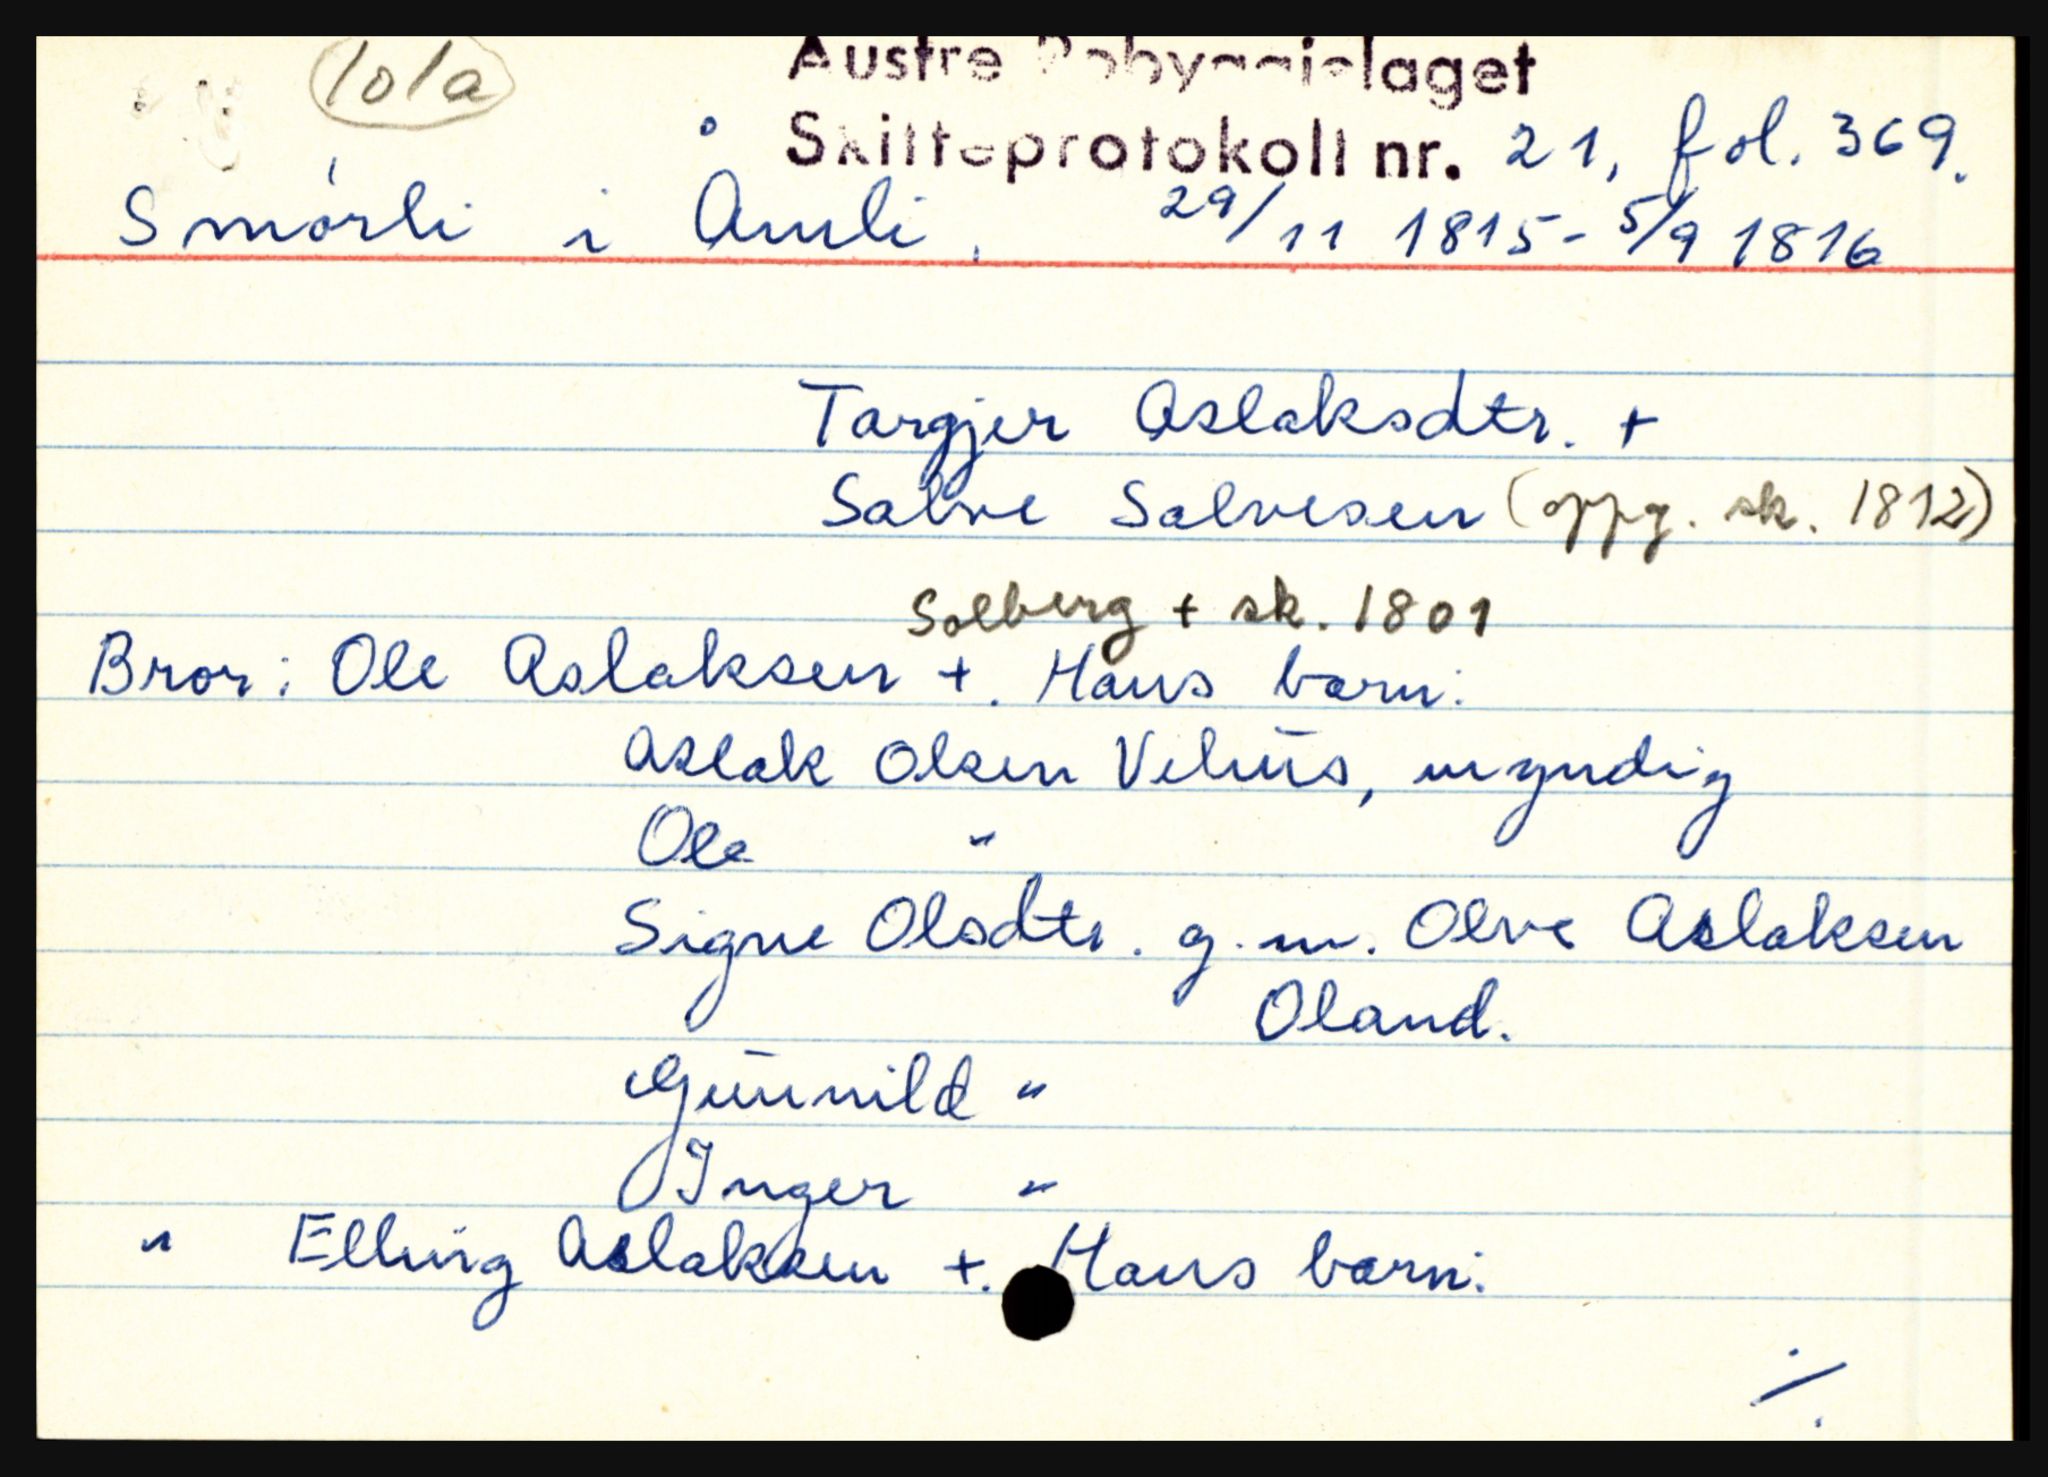 101a
Austre Robyggjelaget
Skifteprotokoll nr. 21, fol. 369.
Smörli i Åmli. 29/11 1815 - 5/9 1816
Targjer Aslaksdtr. +
Salve Salvesen (oppg. sk. 1812)
Solberg + sk. 1801
Bror: Ole Aslaksen +. Hans barn:
Aslak Olsen Vehūs, myndig
Ole "
Signe Olsdtr. g.m. Olve Aslaksen
Oland.
Gūnnild "
Inger "
" Elling Aslaksen +. Hans barn:
./.